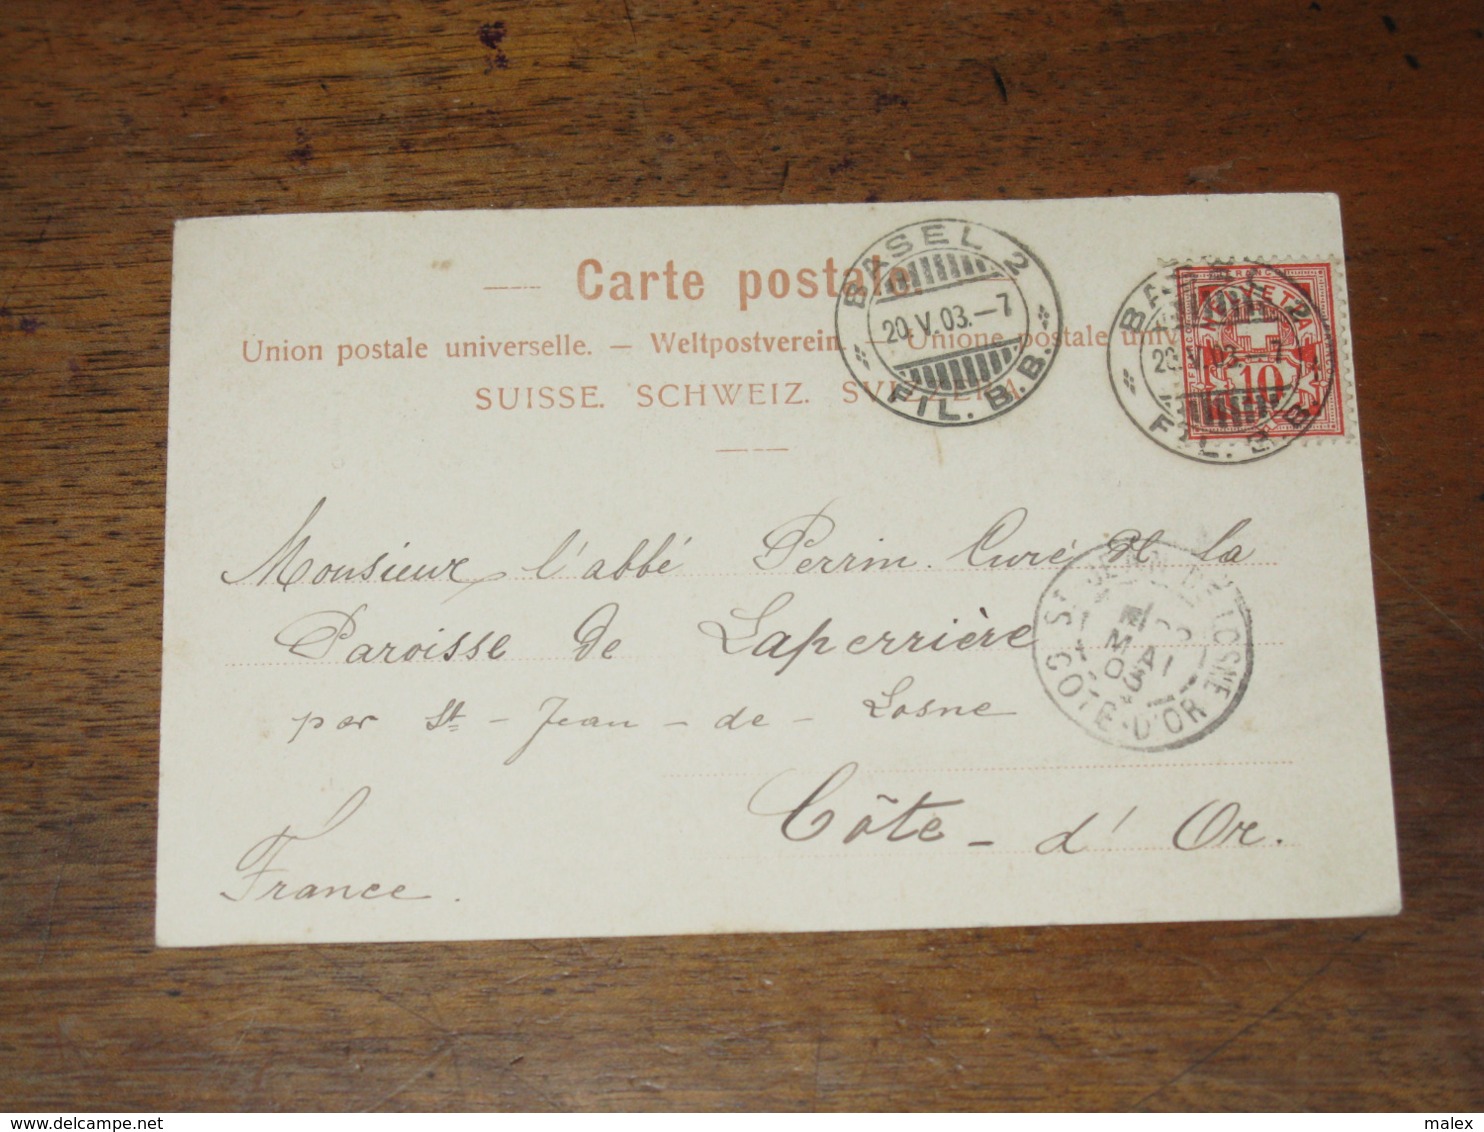 Carte postale.
Union postale universelle. — Weltpostverein. — Unione postale
SUISSE. SCHWEIZ. SVIZZERA.
BASEL 2
20.V.03.–7
FIL. B.B.
BASEL 2
20.V.03.–7
FIL. B.B.
FRANCO
HELVETIA
10
Monsieur l'abbé Perrin Curé de la
Paroisse de Laperrière
par St-Jean-de-Losne
Côte-d'Or.
France.
ST JEAN-DE-LOSNE
MAI
03
COTE-D'OR
delcampe.net
malex